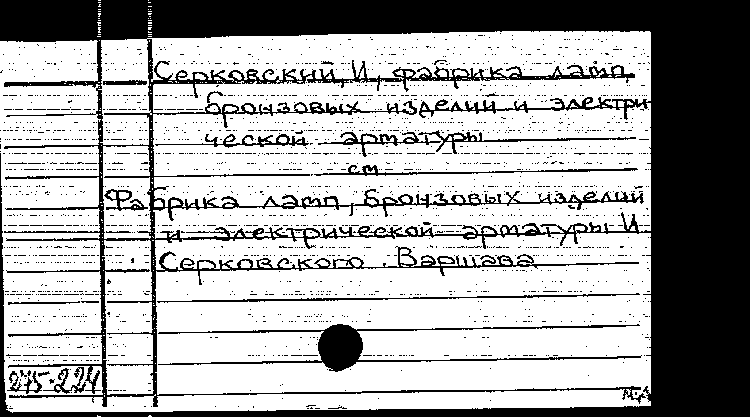 Серковский, И, фабрика ламп,
бронзовых изделий и электри-
ческой арматуры
см
Фабрика ламп, бронзовых изделий
и электрической арматуры И
Серковского. Варшава
275-224